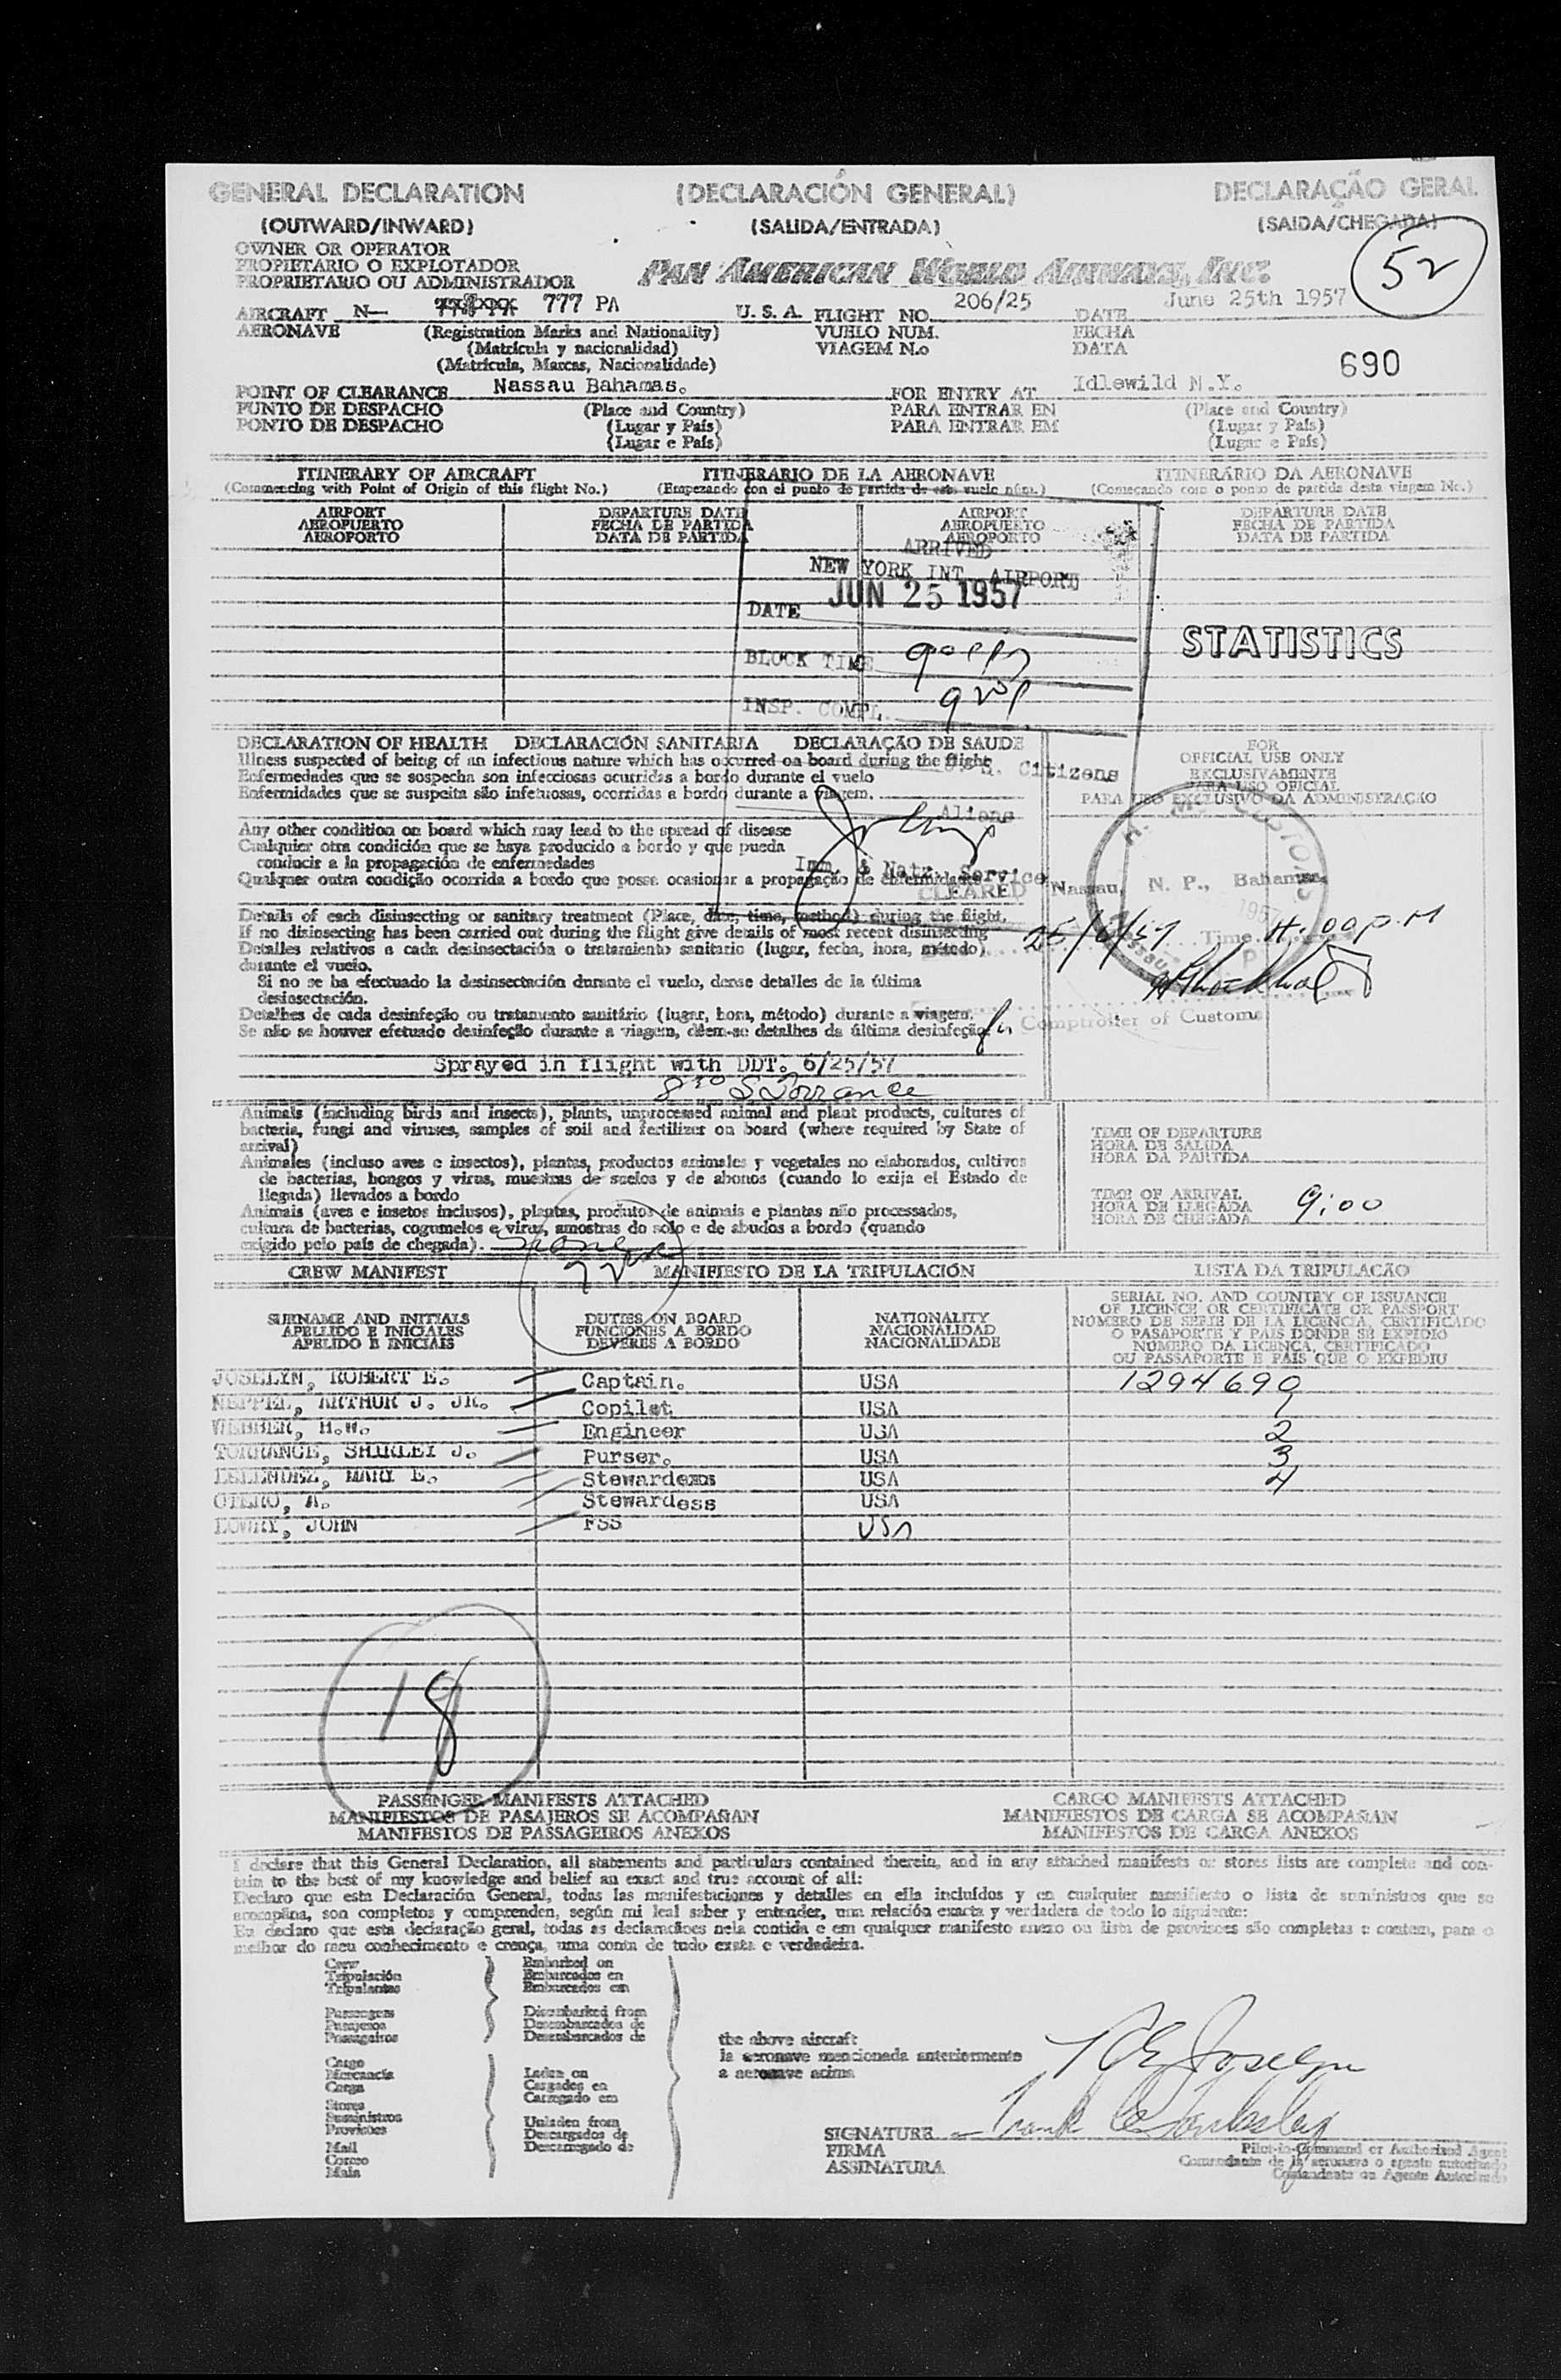 GENERAL DECLARATION (DECLARACIÓN GENERAL) DECLARAÇÃO GERAL
(OUTWARD/INWARD) (SALIDA/ENTRADA) (SAIDA/CHEGADA)
52
OWNER OR OPERATOR
PROPIETARIO O EXPLOTADOR
PROPRIETARIO OU ADMINISTRADOR
PAN AMERICAN WORLD AIRWAYS, INC.
AIRCRAFT N— 777 PA U. S. A. FLIGHT NO. 206/25 DATE June 25th 1957
AERONAVE (Registration Marks and Nationality) VUELO NUM. FECHA
(Matrícula y nacionalidad) VIAGEM N.o DATA
(Matrícula, Marcas, Nacionalidade)
690
POINT OF CLEARANCE Nassau Bahamas. FOR ENTRY AT Idlewild N.Y.
PUNTO DE DESPACHO (Place and Country) PARA ENTRAR EN (Place and Country)
PONTO DE DESPACHO (Lugar y País) PARA ENTRAR EM (Lugar y País)
(Lugar e País) (Lugar e País)
ITINERARY OF AIRCRAFT ITINERARIO DE LA AERONAVE ITINERÁRIO DA AERONAVE
(Commencing with Point of Origin of this flight No.) (Empezando con el punto de partida de este vuelo núm.) (Começando com o ponto de partida desta viagem No.)
AIRPORT DEPARTURE DATE AIRPORT DEPARTURE DATE
AEROPUERTO FECHA DE PARTIDA AEROPUERTO FECHA DE PARTIDA
AEROPORTO DATA DE PARTIDA AEROPORTO DATA DE PARTIDA
ARRIVED
NEW YORK INT. AIRPORT
DATE JUN 25 1957
STATISTICS
BLOCK TIME
INSP. COMPL.
DECLARATION OF HEALTH DECLARACIÓN SANITARIA DECLARAÇÃO DE SAUDE
Illness suspected of being of an infectious nature which has occurred on board during the flight
Enfermedades que se sospecha son infecciosas ocurridas a bordo durante el vuelo
Enfermidades que se suspeita são infetuosas, ocorridas a bordo durante a viagem.
Citizens
Aliens
FOR
OFFICIAL USE ONLY
EXCLUSIVAMENTE
PARA USO OFICIAL
PARA USO EXCLUSIVO DA ADMINISTRAÇÃO
Any other condition on board which may lead to the spread of disease
Cualquier otra condición que se haya producido a bordo y que pueda
conducir a la propagación de enfermedades
Qualquer outra condição ocorrida a bordo que possa ocasionar a propagação de enfermidades
Imm. & Natz. Service
CLEARED
Nassau, N. P., Bahamas
25/6/57 Time 4:00 P.M
Comptroller of Customs
Details of each disinsecting or sanitary treatment (Place, date, time, method) during the flight.
If no disinsecting has been carried out during the flight give details of most recent disinsecting
Detalles relativos a cada desinsectación o tratamiento sanitario (lugar, fecha, hora, método)
durante el vuelo.
Si no se ha efectuado la desinsectación durante el vuelo, dense detalles de la última
desinsectación.
Detalhes de cada desinfeção ou tratamento sanitário (lugar, hora, método) durante a viagem.
Se não se houver efetuado desinfeção durante a viagem, dêem-se detalhes da última desinfeção
Sprayed in flight with DDT. 6/25/57
S Torrance
Animals (including birds and insects), plants, unprocessed animal and plant products, cultures of
bacteria, fungi and viruses, samples of soil and fertilizer on board (where required by State of
arrival)
Animales (incluso aves e insectos), plantas, productos animales y vegetales no elaborados, cultivos
de bacterias, hongos y virus, muestras de suelos y de abonos (cuando lo exija el Estado de
llegada) llevados a bordo
Animais (aves e insetos inclusos), plantas, produtos de animais e plantas não processados,
cultura de bacterias, cogumelos e virus, amostras do solo e de abudos a bordo (quando
exigido pelo país de chegada).
TIME OF DEPARTURE
HORA DE SALIDA
HORA DA PARTIDA
TIME OF ARRIVAL
HORA DE LLEGADA
HORA DE CHEGADA 9:00
CREW MANIFEST MANIFIESTO DE LA TRIPULACIÓN LISTA DA TRIPULAÇÃO
SURNAME AND INITIALS DUTIES ON BOARD NATIONALITY
APELLIDO E INICIALES FUNCIONES A BORDO NACIONALIDAD
APELIDO E INICIAIS DEVERES A BORDO NACIONALIDADE
SERIAL NO. AND COUNTRY OF ISSUANCE
OF LICENCE OR CERTIFICATE OR PASSPORT
NÚMERO DE SERIE DE LA LICENCIA, CERTIFICADO
O PASAPORTE Y PAIS DONDE SE EXPIDIO
NUMERO DA LICENÇA, CERTIFICADO
OU PASSAPORTE E PAIS QUE O EXPEDIU
JOSELYN, ROBERT E. Captain. USA 1294690
NEPPEL, ARTHUR J. JR. Copilot USA 1
WEBBER, H.W. Engineer USA 2
TORRANCE, SHIRLEY J. Purser. USA 3
MARY E. Stewardess USA 4
OTERO, A. Stewardess USA
LOWRY, JOHN FSS USA
18
PASSENGER MANIFESTS ATTACHED CARGO MANIFESTS ATTACHED
MANIFIESTOS DE PASAJEROS SE ACOMPAÑAN MANIFIESTOS DE CARGA SE ACOMPAÑAN
MANIFESTOS DE PASSAGEIROS ANEXOS MANIFESTOS DE CARGA ANEXOS
I declare that this General Declaration, all statements and particulars contained therein, and in any attached manifests or stores lists are complete and con-
tain to the best of my knowledge and belief an exact and true account of all:
Declaro que esta Declaración General, todas las manifestaciones y detalles en ella incluídos y en cualquier manifiesto o lista de suministros que se
acompaña, son completos y comprenden, según mi leal saber y entender, una relación exacta y verdadera de todo lo siguiente:
Eu declaro que esta declaração geral, todas as declarações nela contida e em qualquer manifesto anexo ou lista de provisoes são completas e contem, para o
melhor do meu conhecimento e crença, uma conta de tudo exata e verdadeira.
Crew Embarked on
Tripulación Embarcados en
Tripulantes Embarcados em
Passengers Disembarked from
Pasajeros Desembarcados de
Passageiros Desembarcados de
the above aircraft
la aeronave mencionada anteriormente
a aeronave acima
Cargo Laden on
Mercancía Cargados en
Carga Carregado em
Stores
Suministros
Provisões
Unladen from
Descargados de
Descarregado de
Mail
Correo
Mala
R E Joselyn
SIGNATURE
FIRMA
ASSINATURA
Pilot-in-Command or Authorized Agent
Comandante de la aeronave o agente autorizado
Comandante ou Agente Autorizado